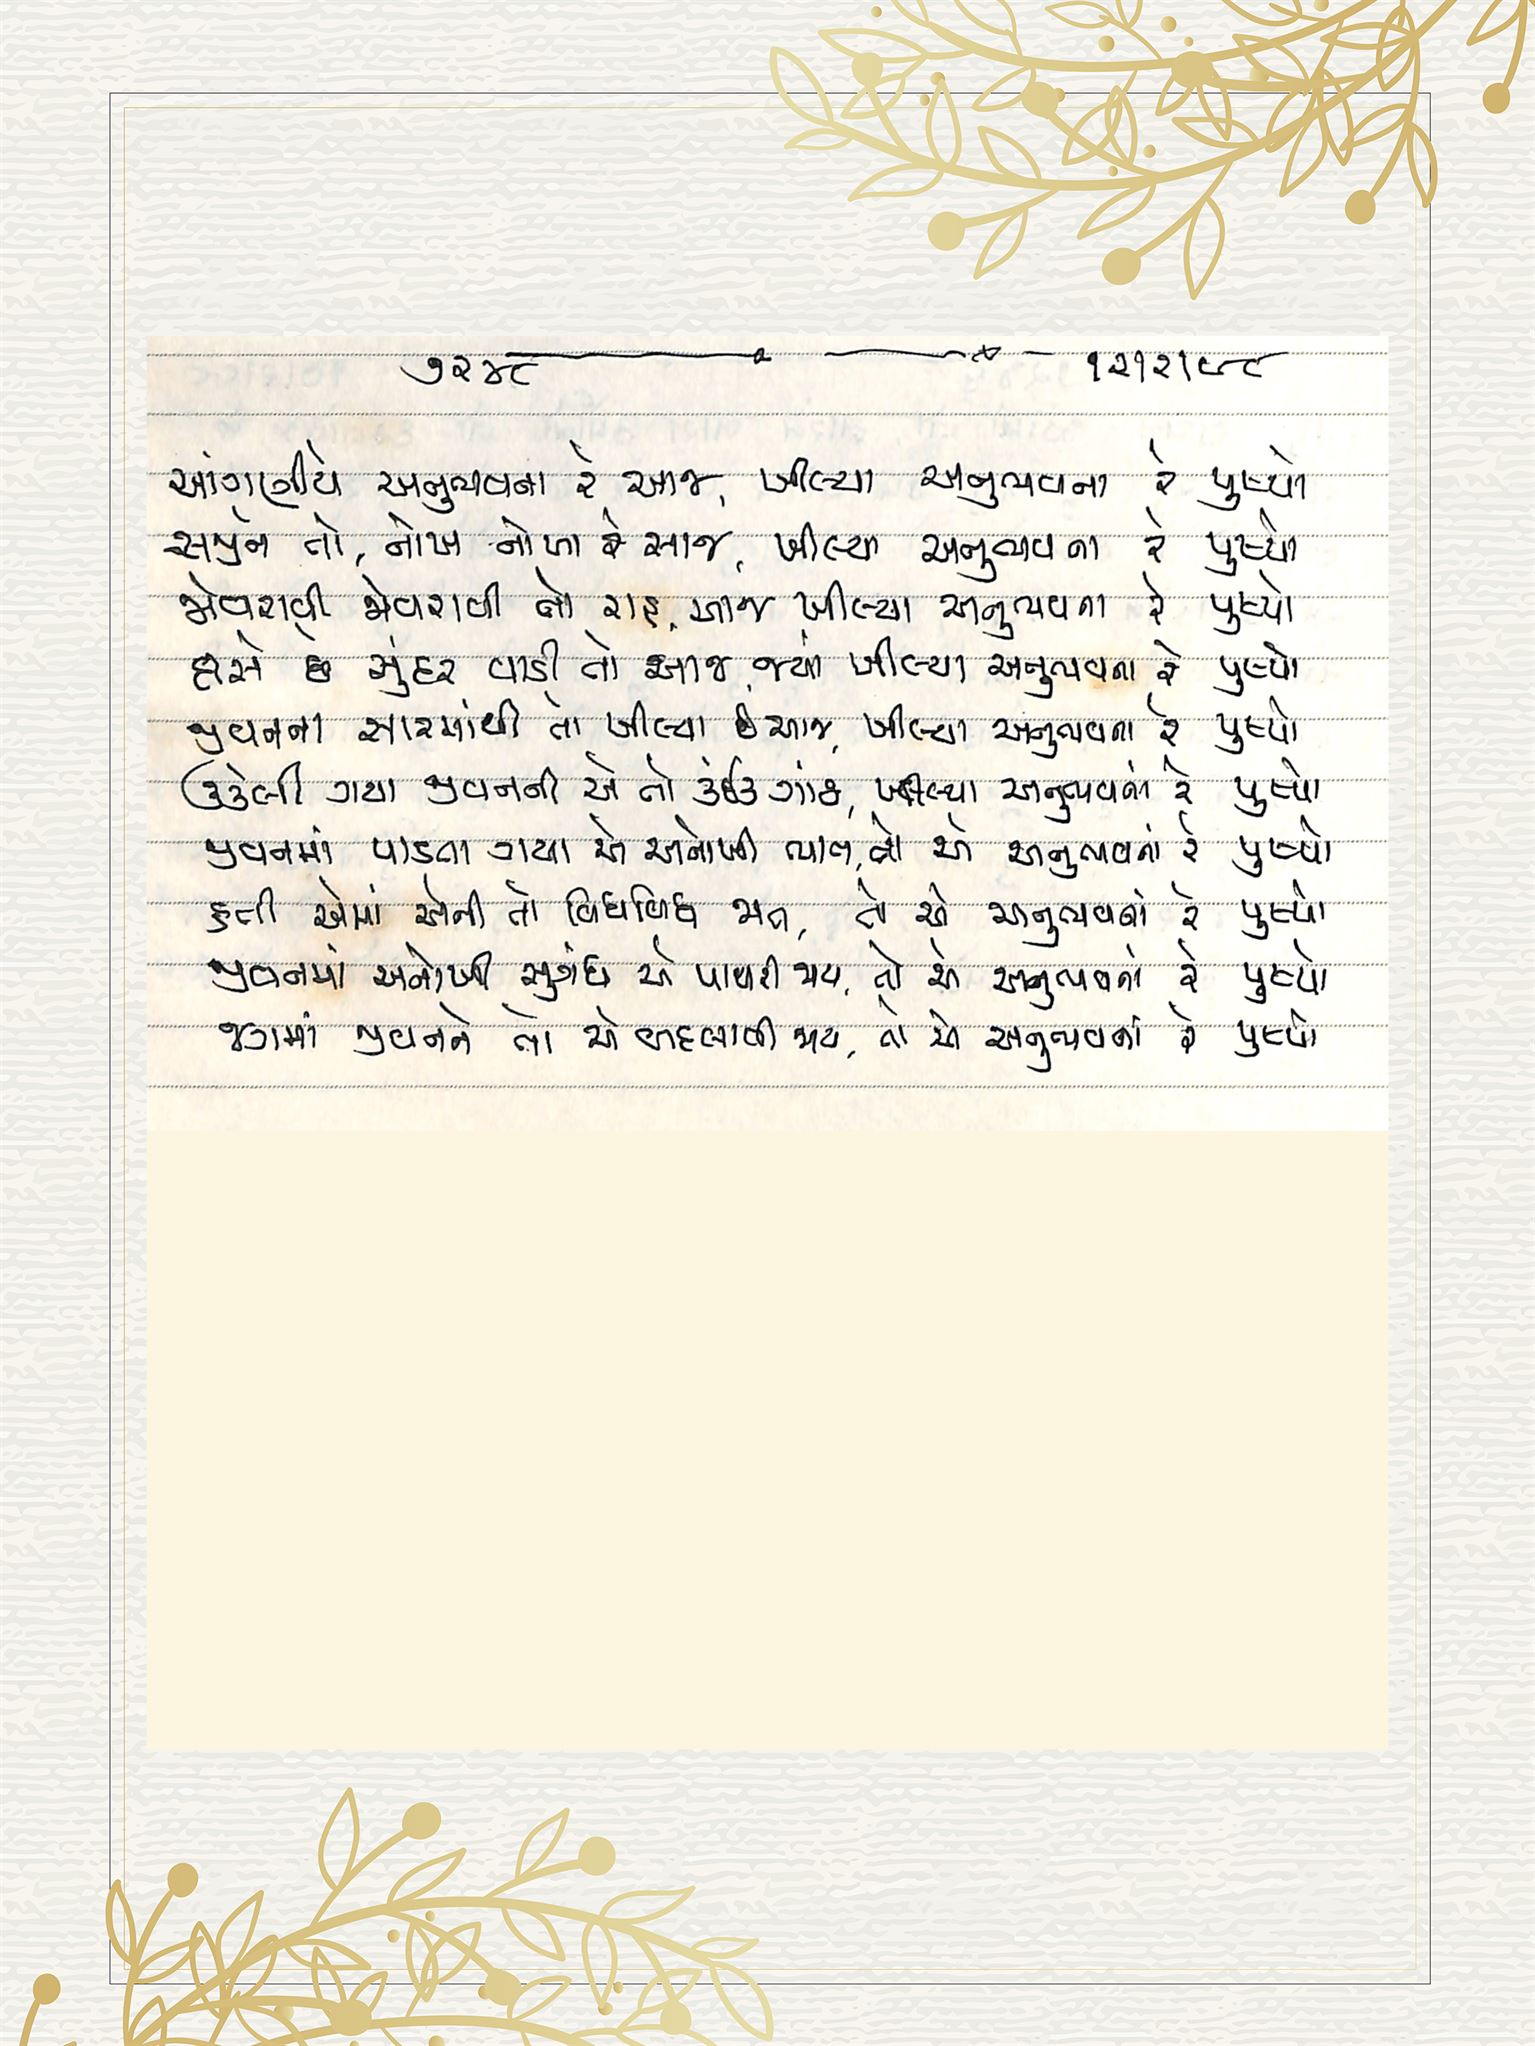 ૭૨૪૮ ૧૨।૨।૯૮
આંગણીયે અનુભવના રે આજ, ખીલ્યા અનુભવના રે પુષ્પો
સર્જીને તો, નોખ નોખા રે સાજ, ખીલ્યા અનુભવના રે પુષ્પો
જોવરાવી જોવરાવી તો રાહ, આજ ખીલ્યા અનુભવના રે પુષ્પો
હસે છે સુંદર વાડી તો આજ, જ્યાં ખીલ્યા અનુભવના રે પુષ્પો
જીવનના સારમાંથી તો ખીલ્યા છે આજ, ખીલ્યા અનુભવના રે પુષ્પો
ઉકેલી ગયા જીવનની એ તો કંઈક ગાંઠ, ખીલ્યા અનુભવનાં રે પુષ્પો
જીવનમાં પાડતા ગયા એ અનોખી ભાત, તો એ અનુભવનાં રે પુષ્પો
હતી એમાં એની તો વિધવિધ જાત, તો એ અનુભવનાં રે પુષ્પો
જીવનમાં અનોખી સુગંધ એ પાથરી જાય, તો એ અનુભવનાં રે પુષ્પો
જગમાં જીવનને તો એ બદલાવી જાય, તો એ અનુભવનાં રે પુષ્પો